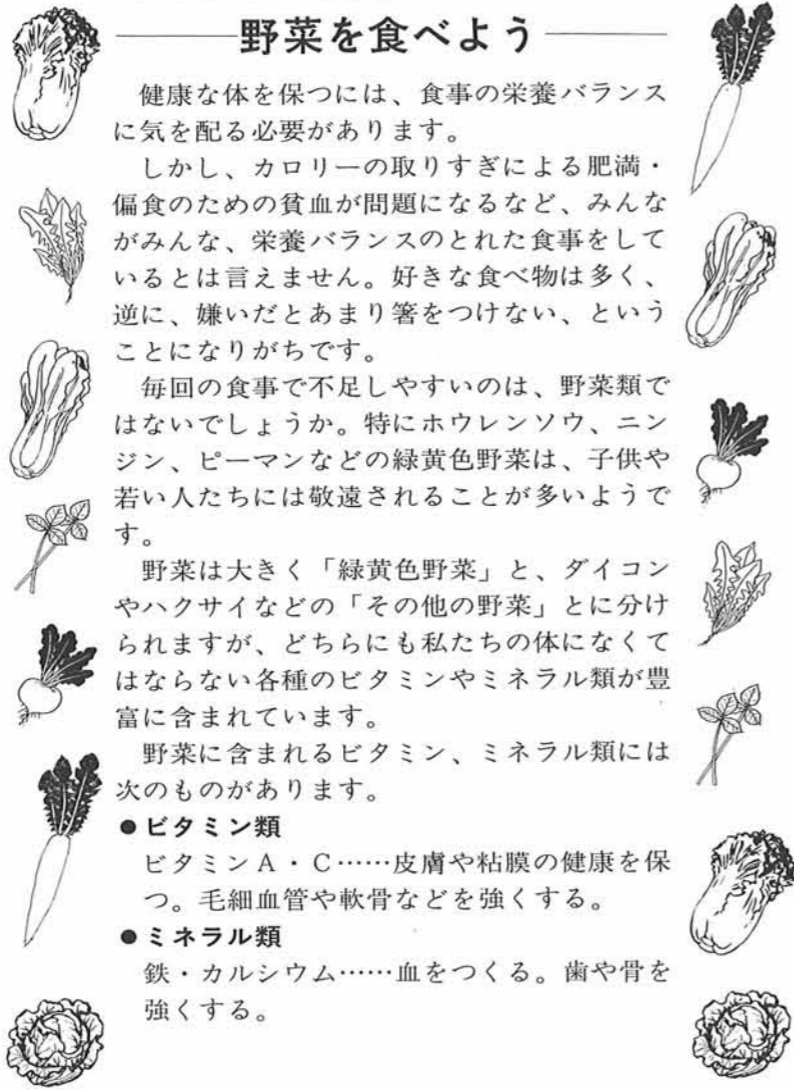 野菜を食べよう
健康な体を保つには、食事の栄養バランス
に気を配る必要があります。
しかし、カロリーの取りすぎによる肥満・
偏食のための貧血が問題になるなど、みんな
がみんな、栄養バランスのとれた食事をして
いるとは言えません。好きな食べ物は多く、
逆に、嫌いだとあまり箸をつけない、という
ことになりがちです。
毎回の食事で不足しやすいのは、野菜類で
はないでしょうか。特にホウレンソウ、ニン
ジン、ピーマンなどの緑黄色野菜は、子供や
若い人たちには敬遠されることが多いようで
す。
野菜は大きく「緑黄色野菜」と、ダイコン
やハクサイなどの「その他の野菜」とに分け
られますが、どちらにも私たちの体になくて
はならない各種のビタミンやミネラル類が豊
富に含まれています。
野菜に含まれるビタミン、ミネラル類には
次のものがあります。
●ビタミン類
ビタミンA・C……皮膚や粘膜の健康を保
つ。毛細血管や軟骨などを強くする。
●ミネラル類
鉄・カルシウム……血をつくる。歯や骨を
強くする。